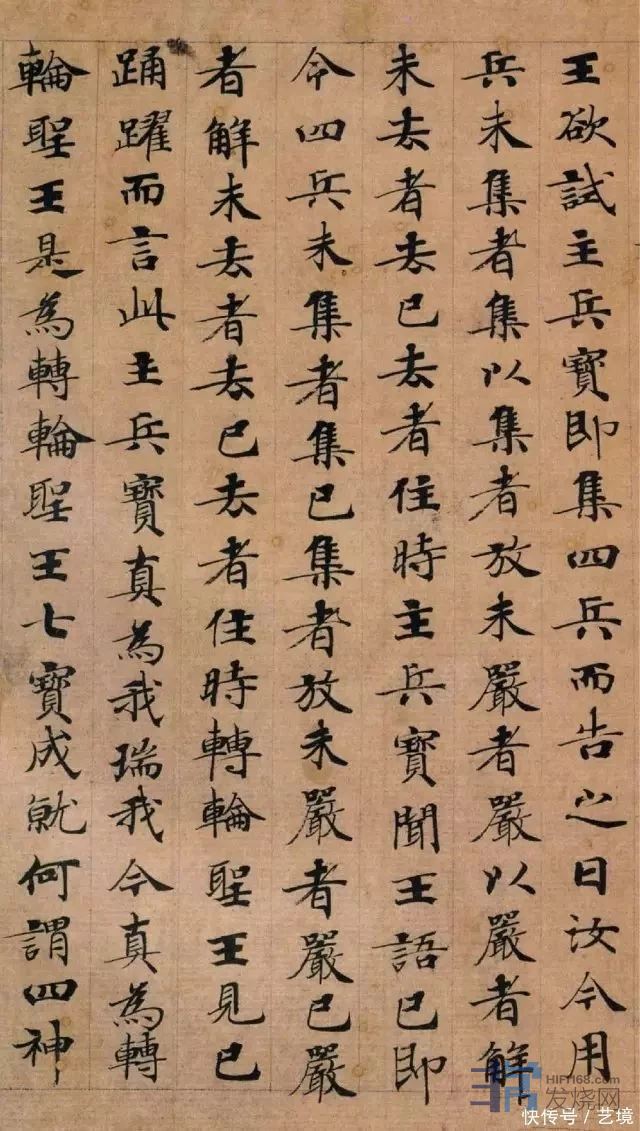 王欲試主兵寶即集四兵而告之曰汝今用
兵未集者集以集者放未嚴者嚴以嚴者解
未去者去已去者住時主兵寶聞王語已即
令四兵未集者集已集者放未嚴者嚴已嚴
者解未去者去已去者住時轉輪聖王見已
踊躍而言此主兵寶真為我瑞我今真為轉
輪聖王是為轉輪聖王七寶成就何謂四神
HIFI168.com
发烧网
快传号/艺境